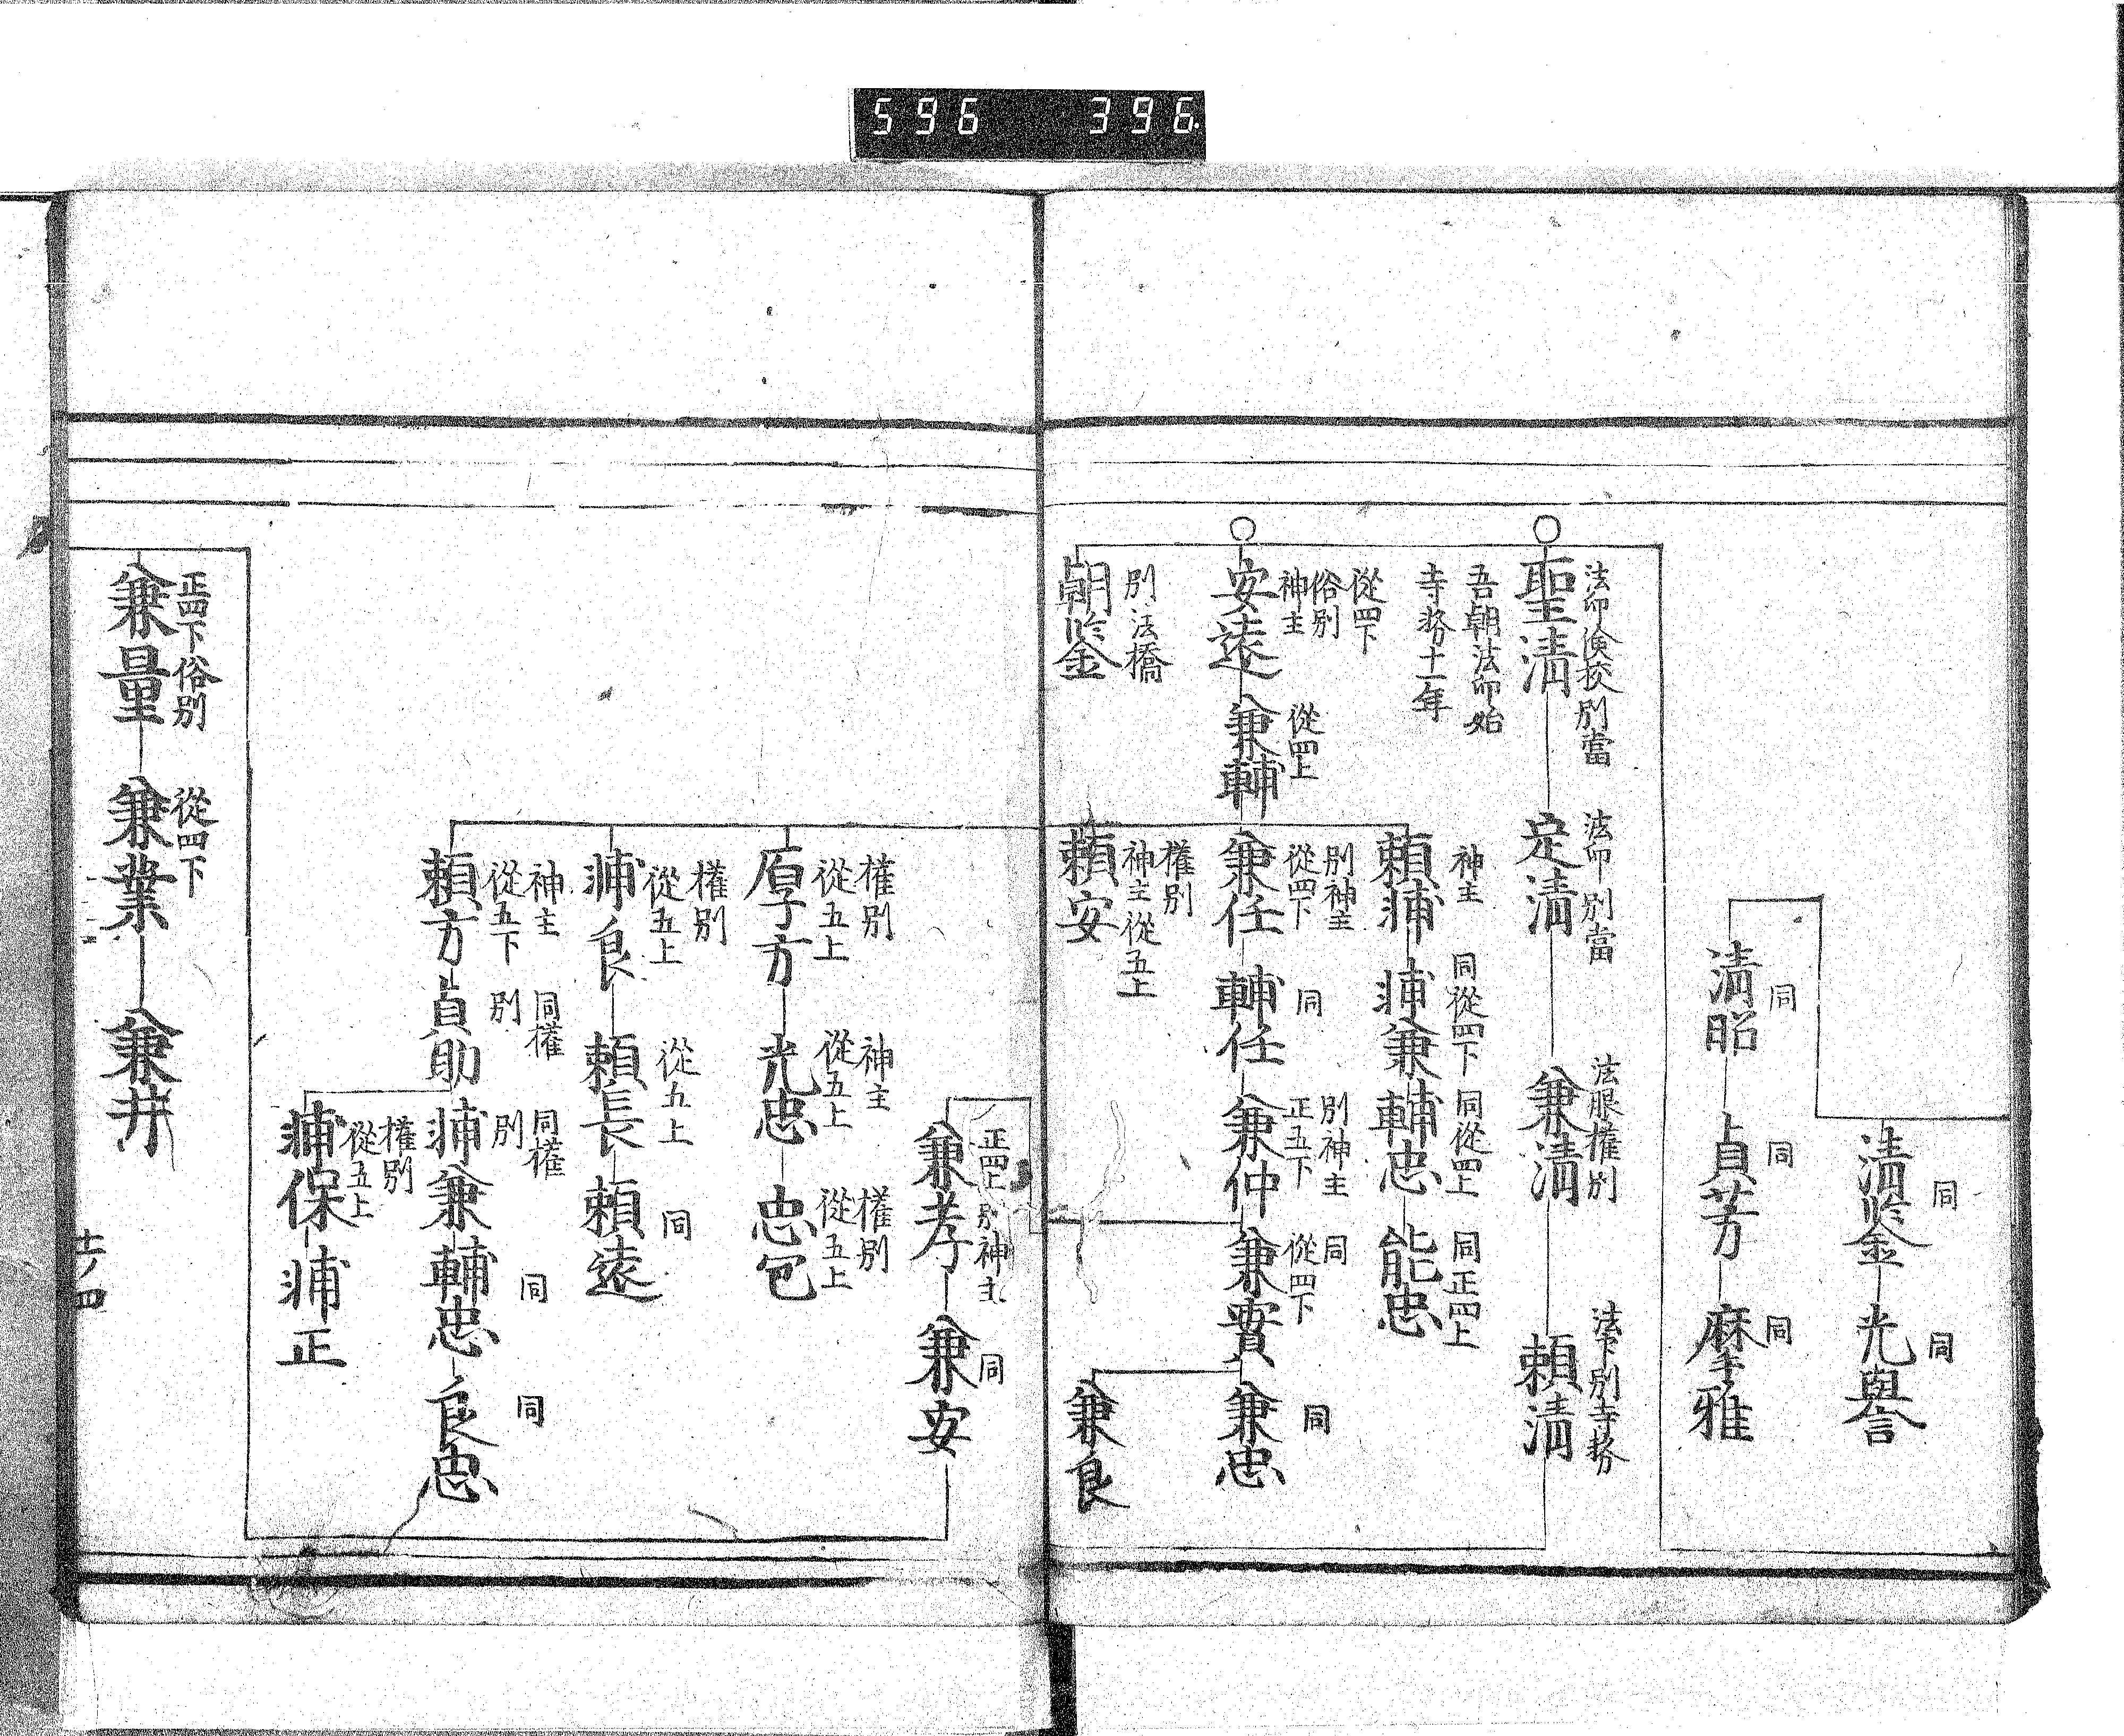 596 396.
清鉴
同
光譽
同
清昭
同
貞芳
同
摩雅
同
聖清
法印儉挍別當
吾朝法印始
寺務十一年
定清
法印別當
兼清
法眼權別
頼清
法下別寺務
安遠
從四下
俗別
神主
兼輔
從四上
頼浦
神主
浦兼
同從四下
輔忠
同從四上
能忠
同正四上
兼任
別神主
從四下
輔任
同
兼仲
別神主
正五下
兼實
同
從四下
兼忠
同
兼良
頼安
權別
神主從五上
朝鉴
別法橋
兼孝
正四上
別神主
兼安
同
厚方
權別
從五上
光忠
神主
從五上
忠包
權別
從五上
浦良
權別
從五上
頼長
從五上
頼遠
同
頼方
神主
從五下
貞助
同權
別
浦兼
同權
別
輔忠
同
良忠
同
浦保
權別
從五上
浦正
兼量
正四下俗別
兼業
從四下
兼井
十ノ四